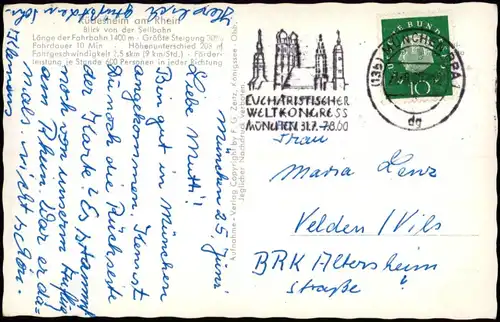 Rüdesheim am Rhein
Blick von der Seilbahn
Länge der Fahrbahn 1400 m - Größte Steigung 30%
Fahrtdauer 10 Min. - Höhenunterschied 203 m
Fahrgeschwindigkeit 2,5 skm (9 km/Std.) - Förder-
leistung je Stunde 600 Personen in jeder Richtung
München 25. Juni
Liebe Mutti!
Bin gut in München
angekommen. Kennst
Du noch die Rückseite
der Karte? Es stammt
noch von unserm Ausflug
am Rhein. War er da-
mals nicht schön.
Herzlich grüßt
Aufnahme u. Verlag Copyright by F. G. Zeitz, Königssee/Obb.
Jeglicher Nachdruck verboten
EUCHARISTISCHER
WELTKONGRESS
MÜNCHEN 31.7.-7.8.60
MÜNCHEN
dg
BUNDES
10
Frau
Maria Lenz
Velden/Vils
BRK Altersheim
Straße